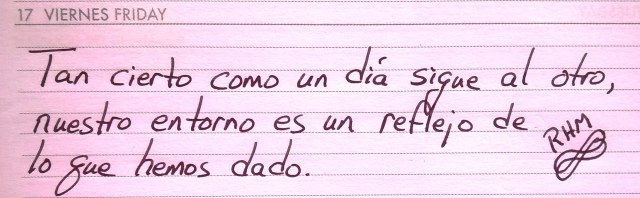 17 VIERNES FRIDAY
Tan cierto como un día sigue al otro,
nuestro entorno es un reflejo de
lo que hemos dado.
RHM